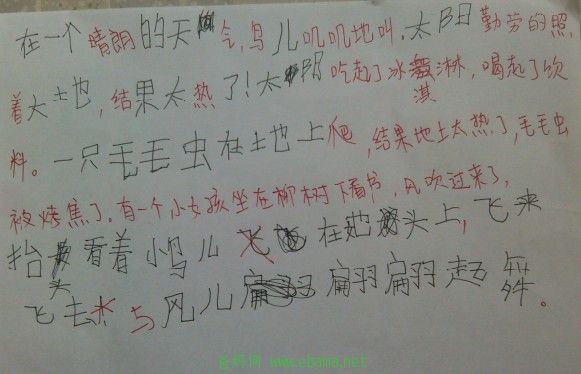 在一个晴朗的天气,鸟儿叽叽地叫,太阳勤劳的照
着大土地,结果太热了!太阳吃起了冰淇淋,喝起了饮
料。一只毛毛虫在土地上爬,结果地上太热了,毛毛虫
被烤焦了。有一个小女孩坐在柳树下看书,风吹过来了,
抬头看着小鸟儿在她头上,飞来
飞去 与风儿翩翩起舞。
www.ebama.net